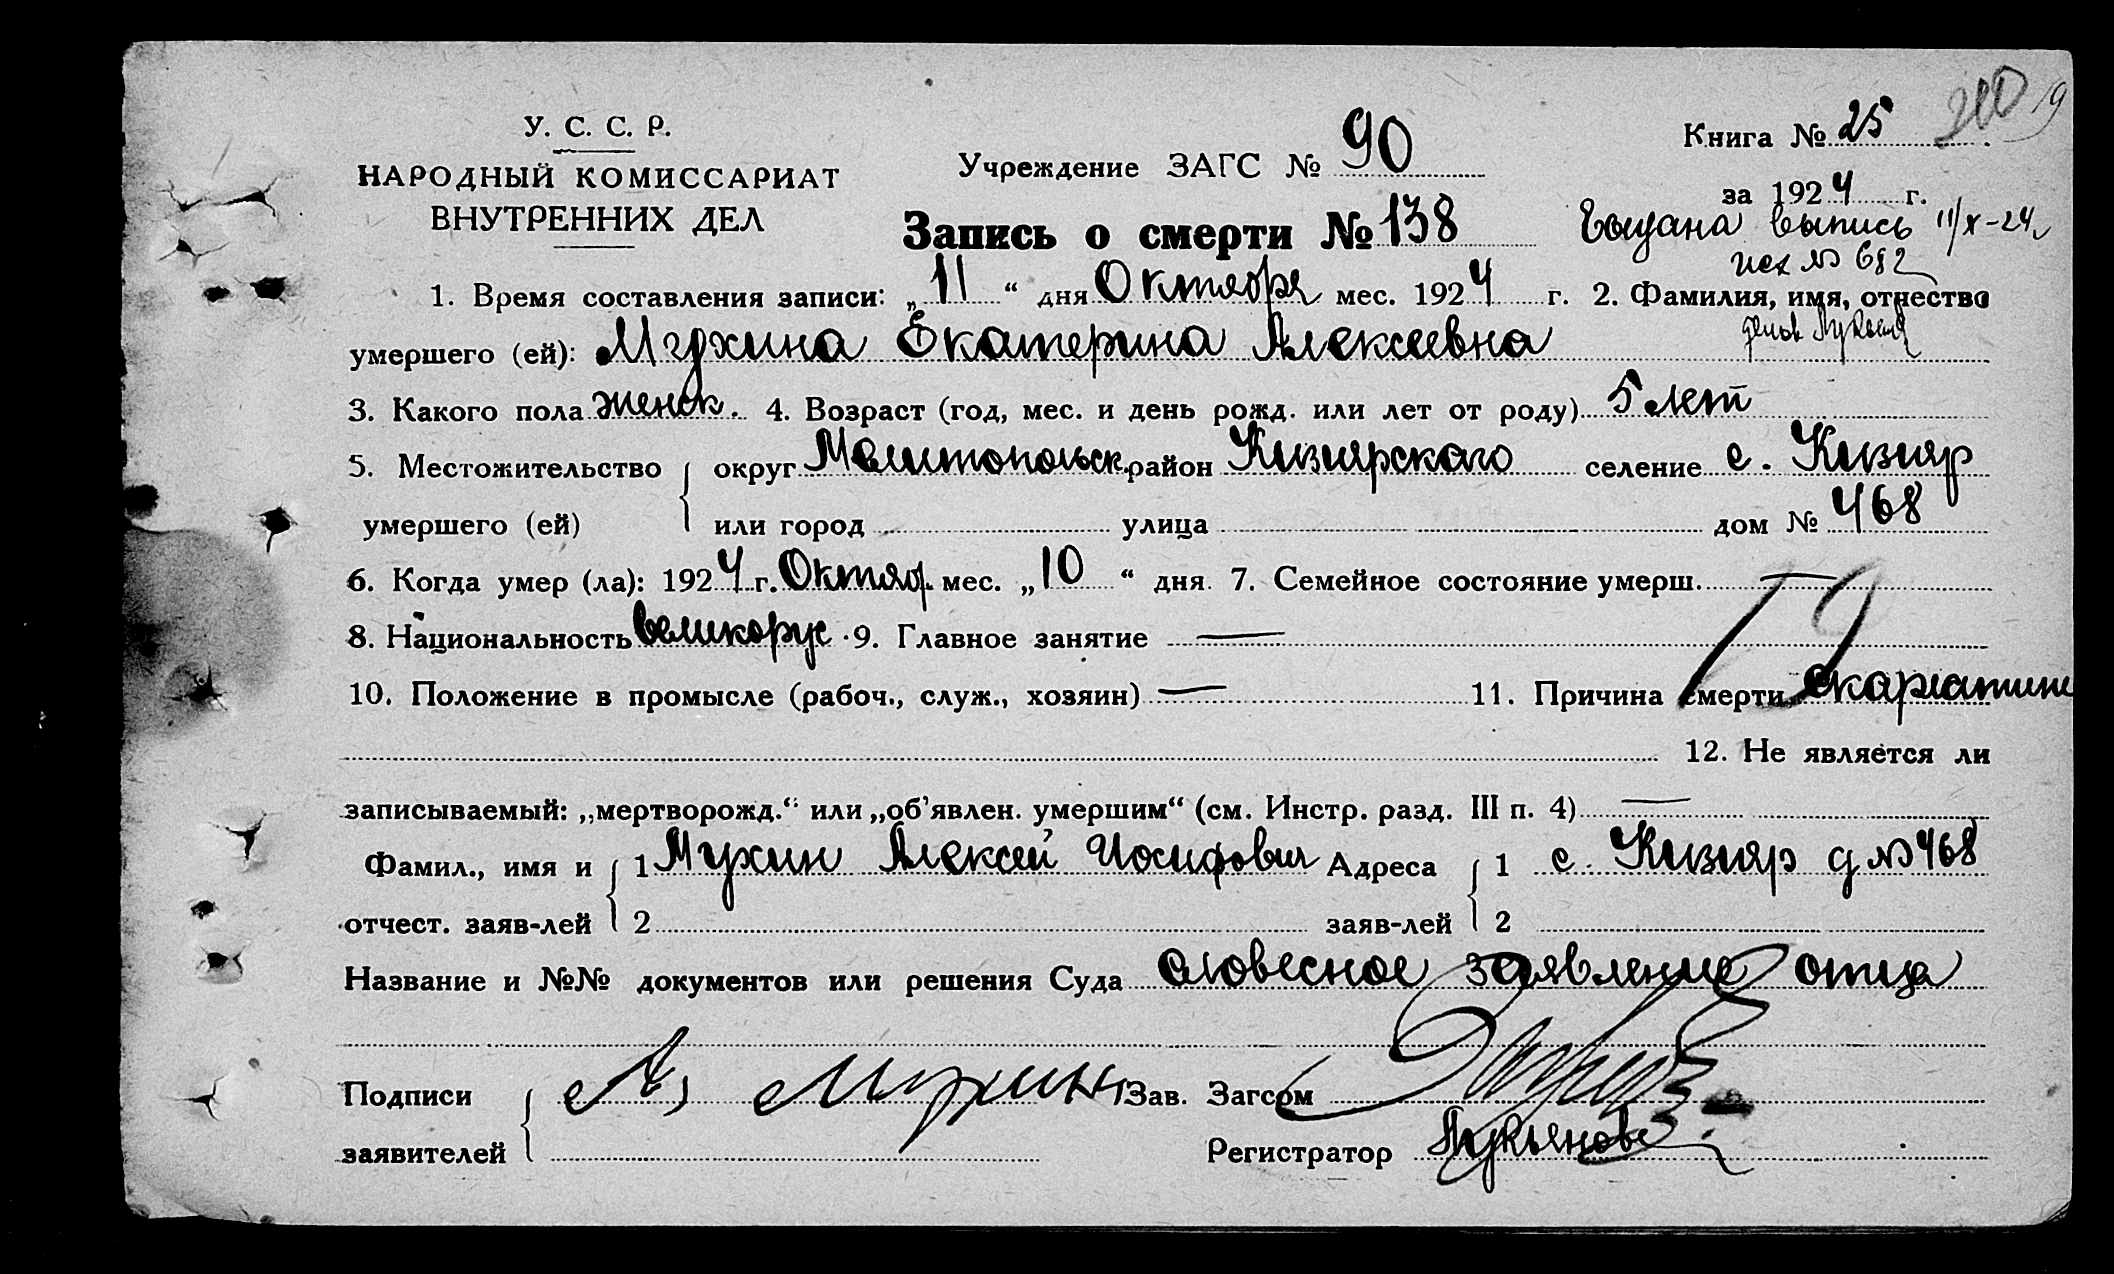 У. С. С. Р.
НАРОДНЫЙ КОМИССАРИАТ
ВНУТРЕННИХ ДЕЛ
Учреждение ЗАГС № 90
Книга № 25
за 1924 г.
Запись о смерти № 138
Выдана выпись 11/X-24
исх № 682
1. Время составления записи: „11“ дня Октября мес. 1924 г. 2. Фамилия, имя, отчество
умершего (ей): Мухина Екатерина Алексеевна
3. Какого пола женск. 4. Возраст (год, мес. и день рожд. или лет от роду) 5 лет
5. Местожительство округ Мелитопольск. район Кизиярского селение с. Кизияр
умершего (ей) или город улица дом № 468
6. Когда умер (ла): 1924 г. Октяб. мес. „10“ дня. 7. Семейное состояние умерш. —
8. Национальность великорус 9. Главное занятие —
10. Положение в промысле (рабоч., служ., хозяин) — 11. Причина смерти Скарлатина
12. Не является ли
записываемый: „мертворожд.“ или „об'явлен. умершим“ (см. Инстр. разд. III п. 4) —
Фамил., имя и 1 Мухин Алексей Иосифович Адреса 1 с. Кизияр д № 468
отчест. заяв-лей 2 заяв-лей 2
Название и №№ документов или решения Суда словесное заявление отца
Подписи А. Мухин Зав. Загсом
заявителей Регистратор Лукьянов